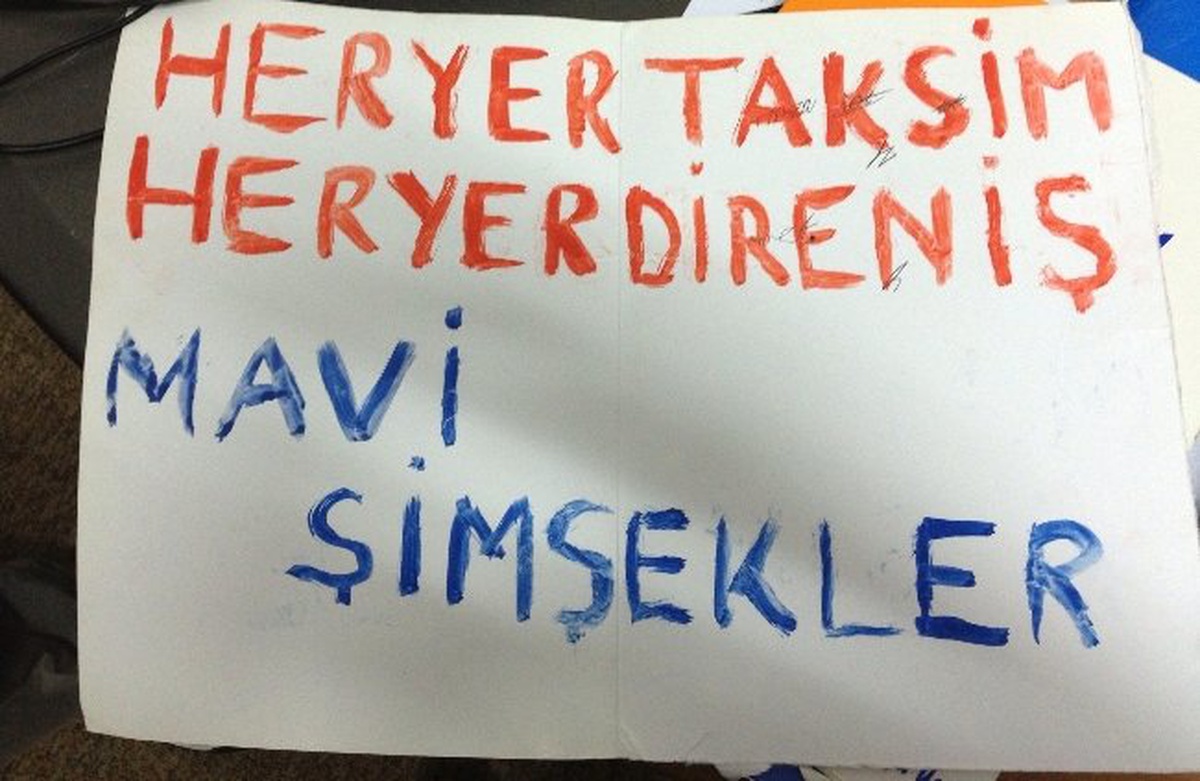 HERYER TAKSİM
HERYER DİRENİŞ
MAVİ
ŞİMŞEKLER